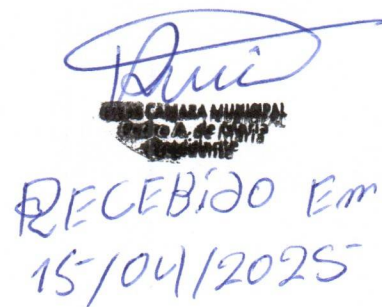 CAMARA MUNICIPAL
Pedro A. de Maria
Presidente
RECEBIDO Em
15/04/2025